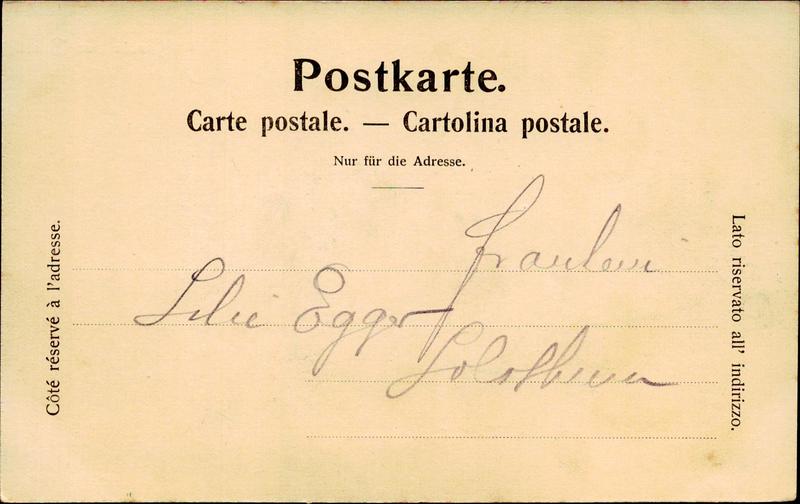 Postkarte.
Carte postale. — Cartolina postale.
Nur für die Adresse.
Côté réservé à l'adresse.
Lato riservato all' indirizzo.
Fräulein
Egger
Solothurn